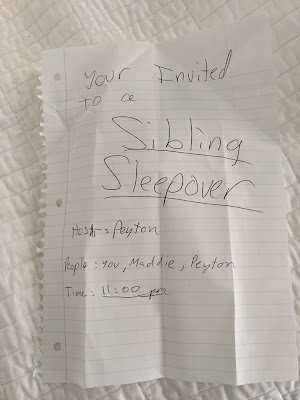 Your Invited
to a
Sibling
Sleepover
Host: Peyton
People: You, Maddie, Peyton
Time: 11:00 pm